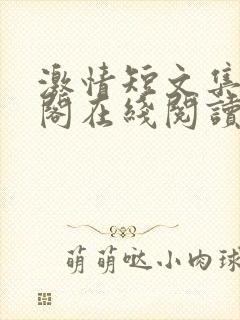 激情短文集
阁在綫閱讀
萌萌哒小肉球